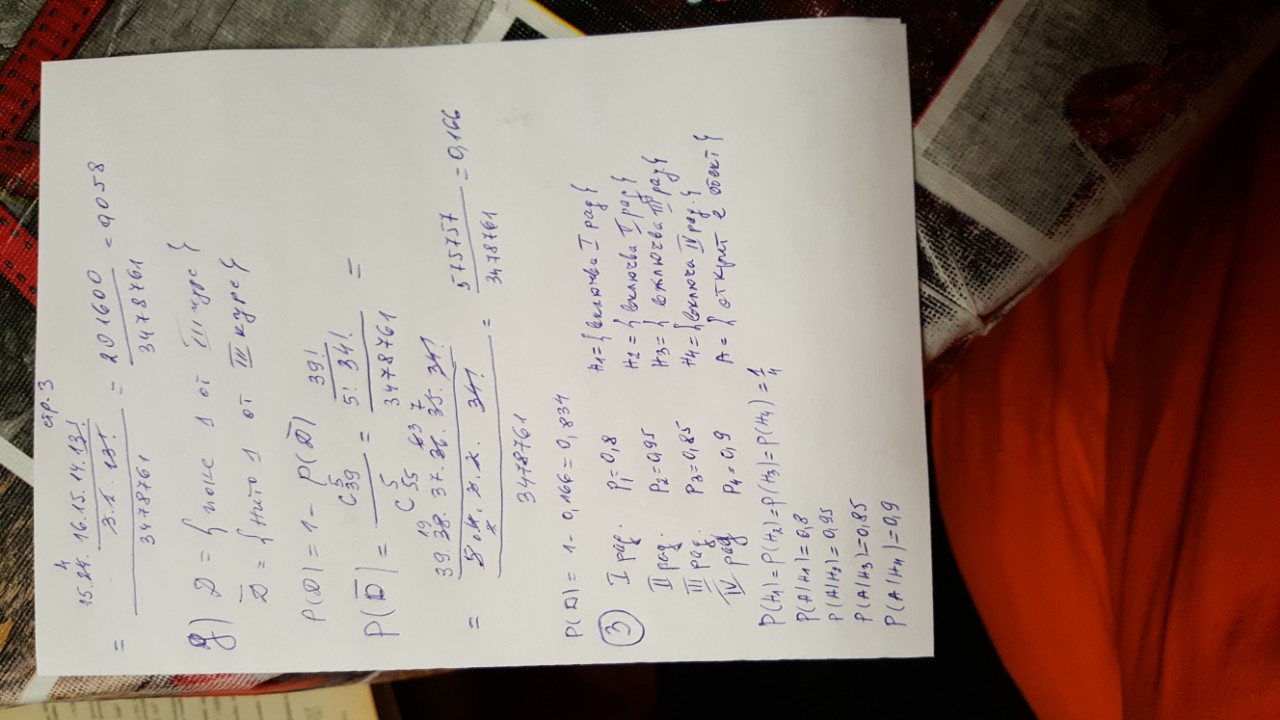 стр. 3
= (15.24. 4 (16.15.14.13!)/(3.2.13!))/3478761 = 201600/3478761 = 0,058
д) D = { поне 1 от III курс }
D̄ = { нито 1 от III курс }
P(D) = 1 - P(D̄)
P(D̄) = C⁵₃₉/C⁵₅₅ = (39!/(5! 34!))/3478761 =
= ((39.38. 19 37.36. 63 35. 7 34!)/(5.4. 2 3.2. 34!))/3478761 = 575757/3478761 = 0,166
P(D) = 1 - 0,166 = 0,834
3 I рад. P₁=0,8 H₁={включва I рад}
II рад. P₂=0,95 H₂={включва II рад}
III рад. P₃=0,85 H₃={включва III рад}
IV рад P₄=0,9 H₄={включа IV рад.}
A={открит е обект}
P(H₁)=P(H₂)=P(H₃)=P(H₄)=1/4
P(A/H₁)=0,8
P(A/H₂)=0,95
P(A/H₃)=0,85
P(A/H₄)=0,9